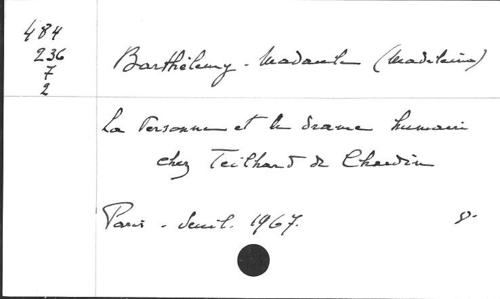 484
236
7
2
Barthélemy - Madaule (Madeleine)
La Personne et le drame humain
chez Teilhard de Chardin
Paris - Seuil. 1967. 8°